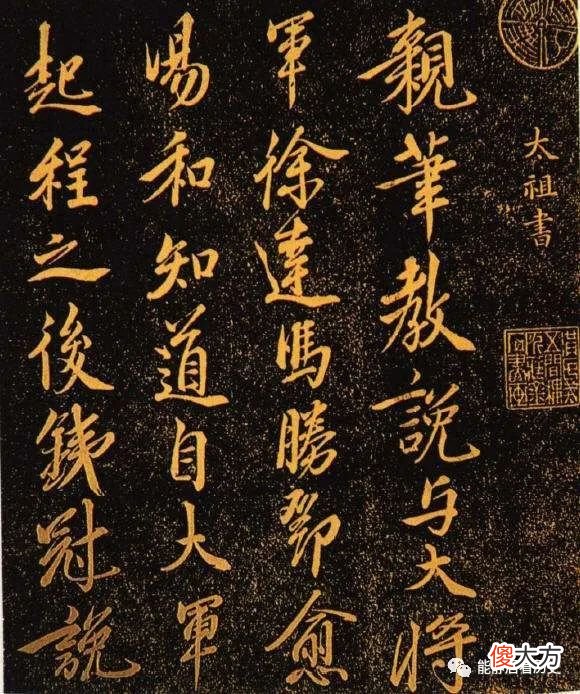 太祖書
親筆教說与大將
軍徐達馮勝鄧愈
湯和知道自大軍
起程之後銕冠說
傻大方
能静居看历史